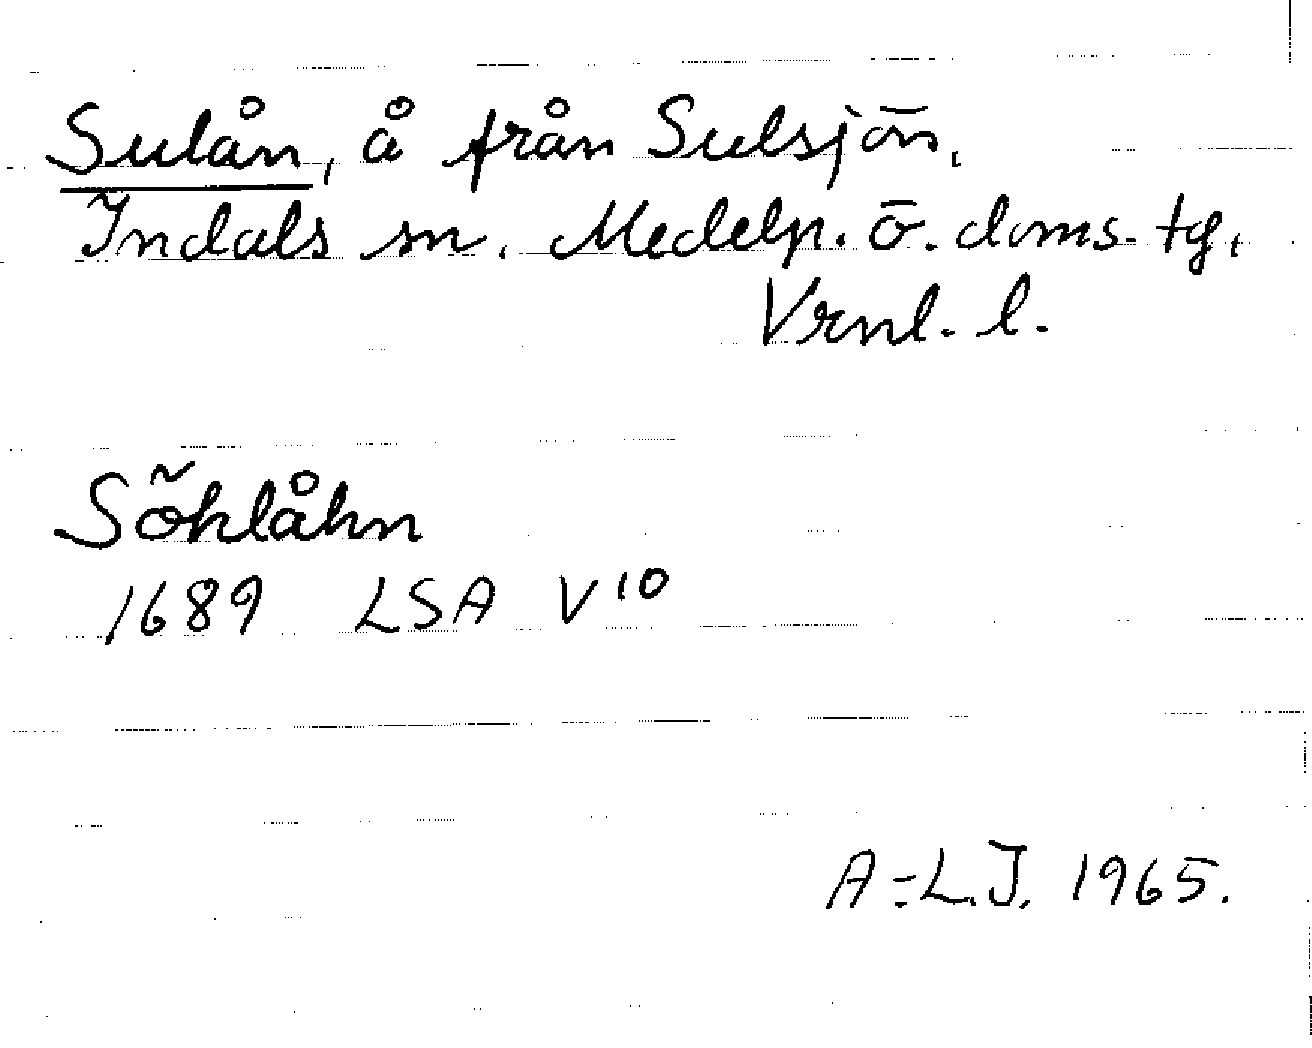 Sulån, å från Sulsjön,
Indals sn. Medelp. ö. doms. tg,
Vrnl. l.
Söhlåhn
1689 LSA V10
A-L.J. 1965.